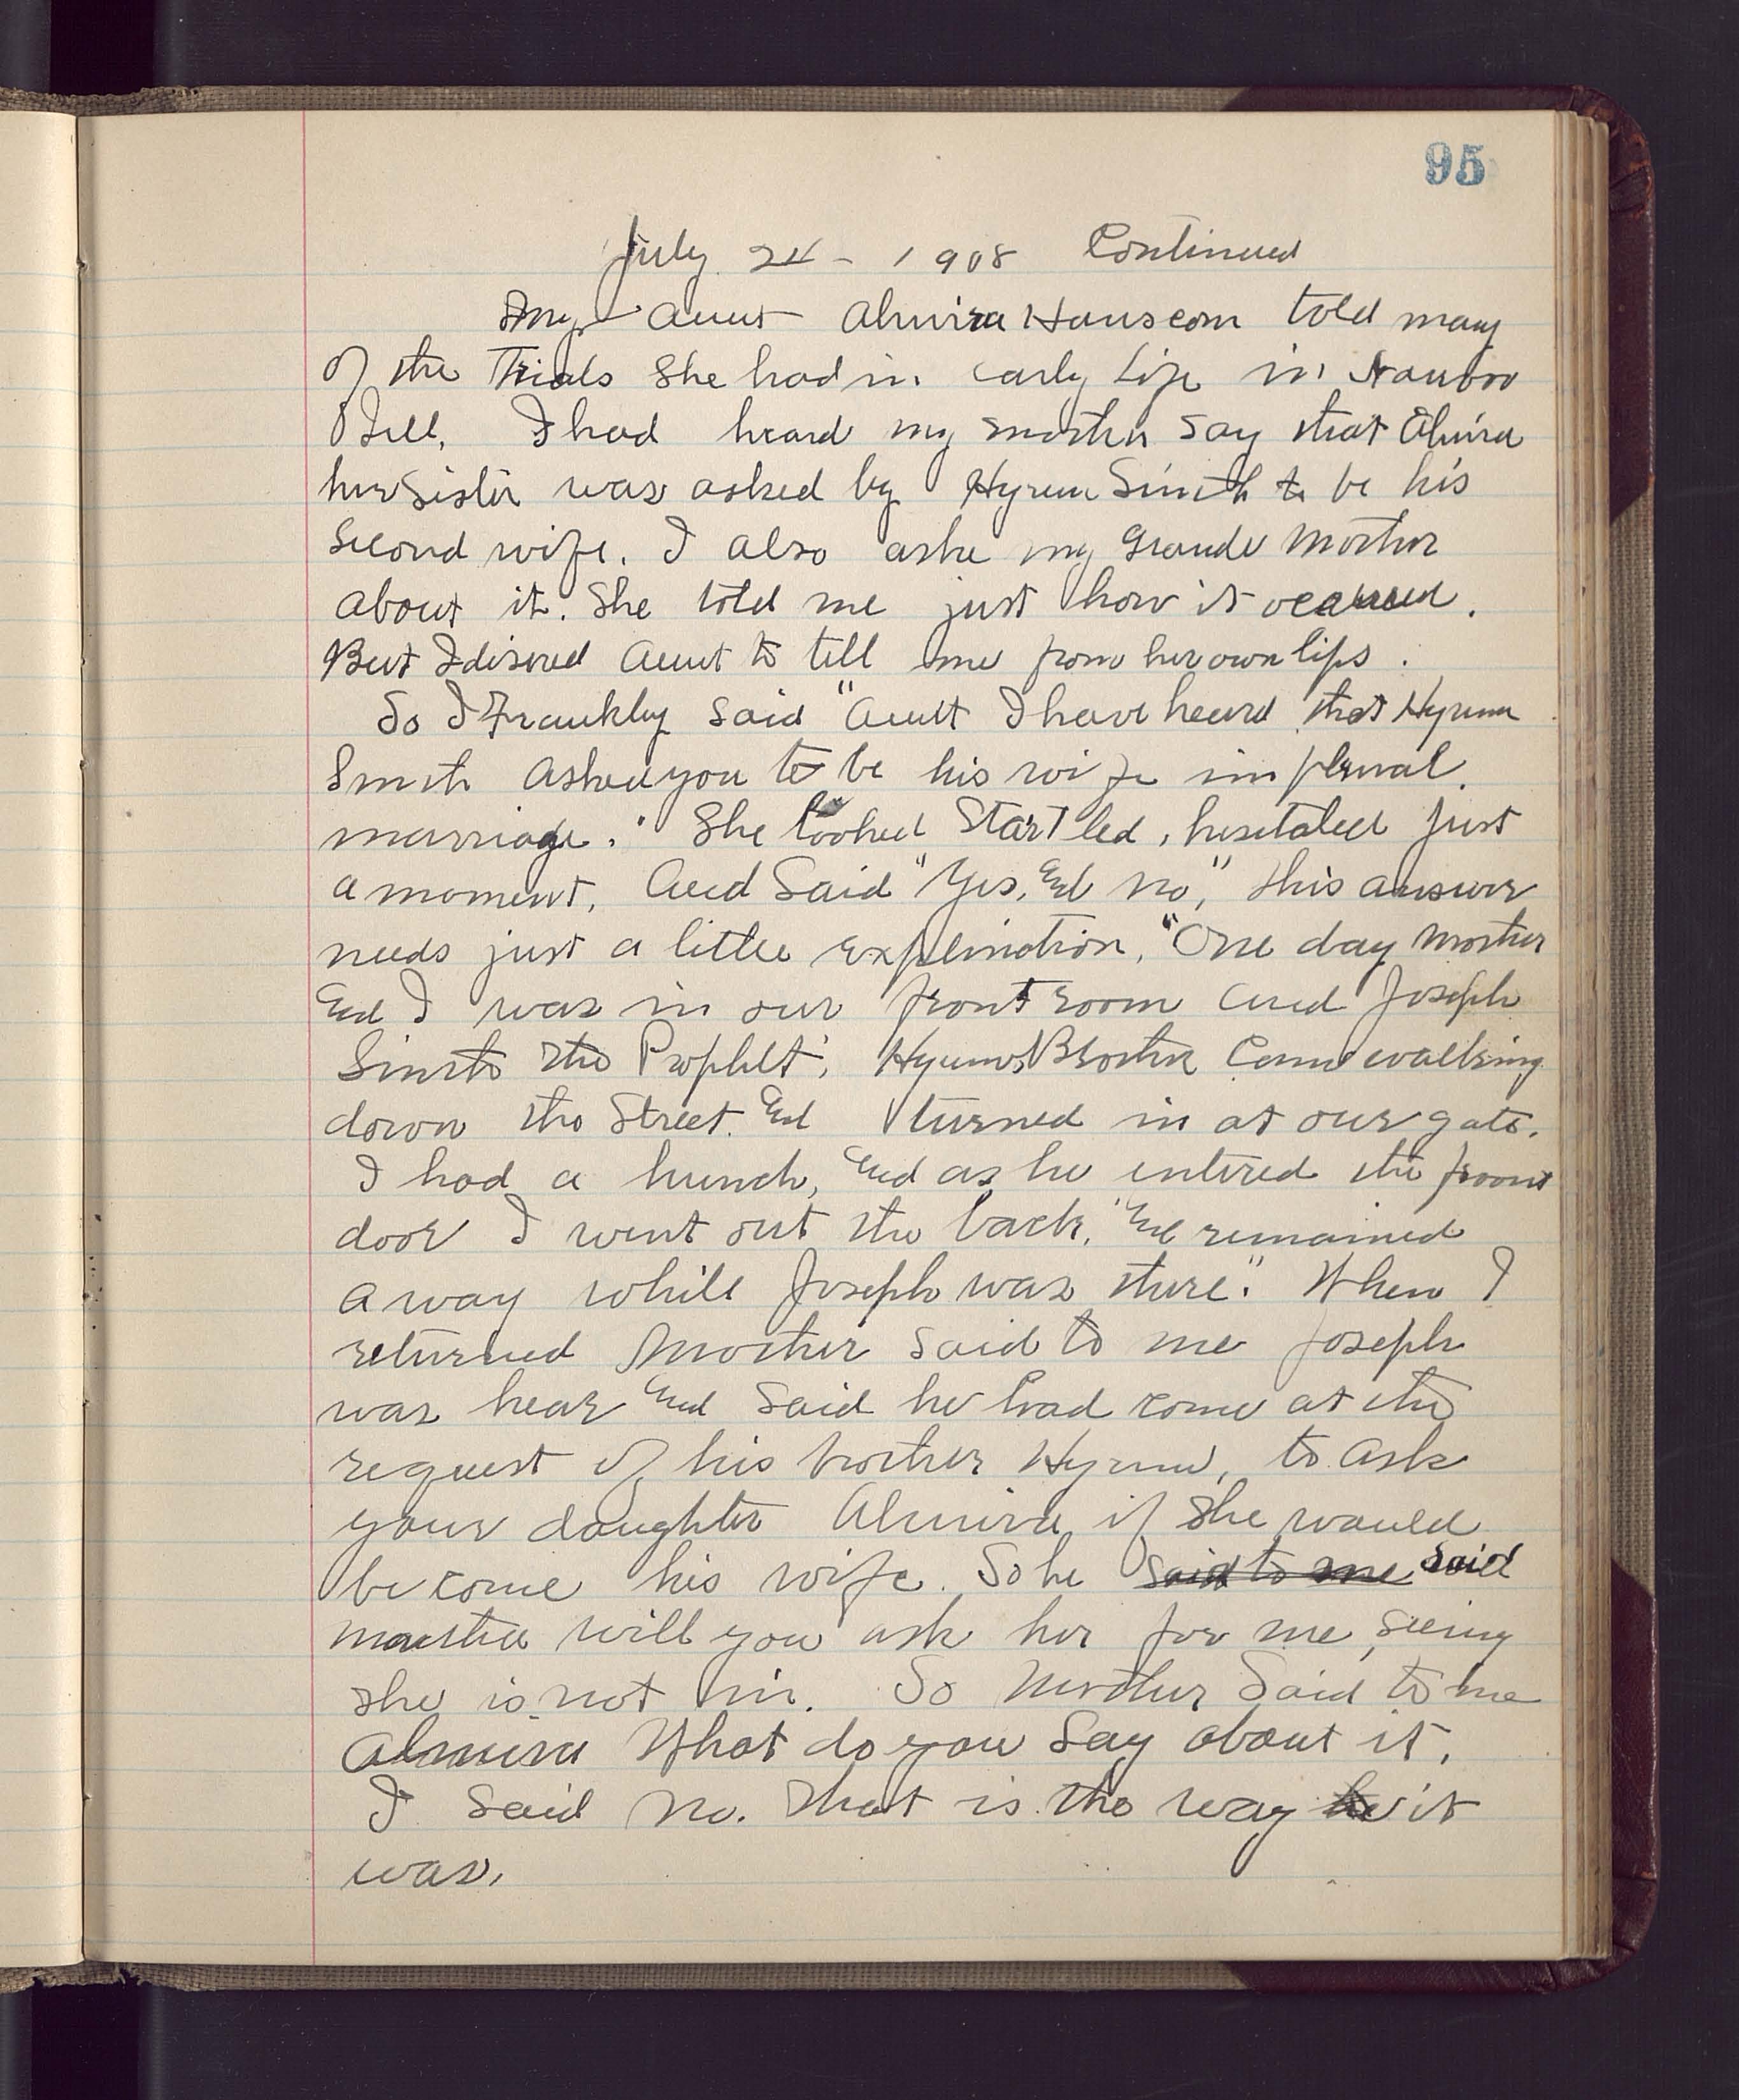 95
July 24 - 1908 Continued
My Aunt Almira Hanscom told many
of the Trials She had in early Life in Nauvoo
Ill, I had heard my mother say that Almira
her Sister was asked by Hyrum Smith to be his
Second wife. I also aske my Grande Mother
about it. She told me just how it occurred.
But I disired Aunt to till me from her own lips.
So I Frankly said "Aunt I have heard that Hyrum
Smith Asked you to be his wife in plural
marriage." She looked Startled, hesitated Just
a moment, And Said "Yes, And no," this answer
needs just a little explination, "One day Mother
And I was in our front room And Joseph
Smith the Prophet, Hyrums Brother Came walking
down the Street And turned in at our gate.
I had a hunch, And as he entired the front
door I went out the back, And remained
away while Joseph was there." When I
returned Mother said to me Joseph
was hear And said he had come at the
request of his brother Hyrum, to ask
your daughter Almira if She would
become his wife. So he said to me said
Martha will you ask her for me, seeing
she is not in. So Mother Said to me
Almira What do you Say about it.
I Said No. That is the way he it
was.